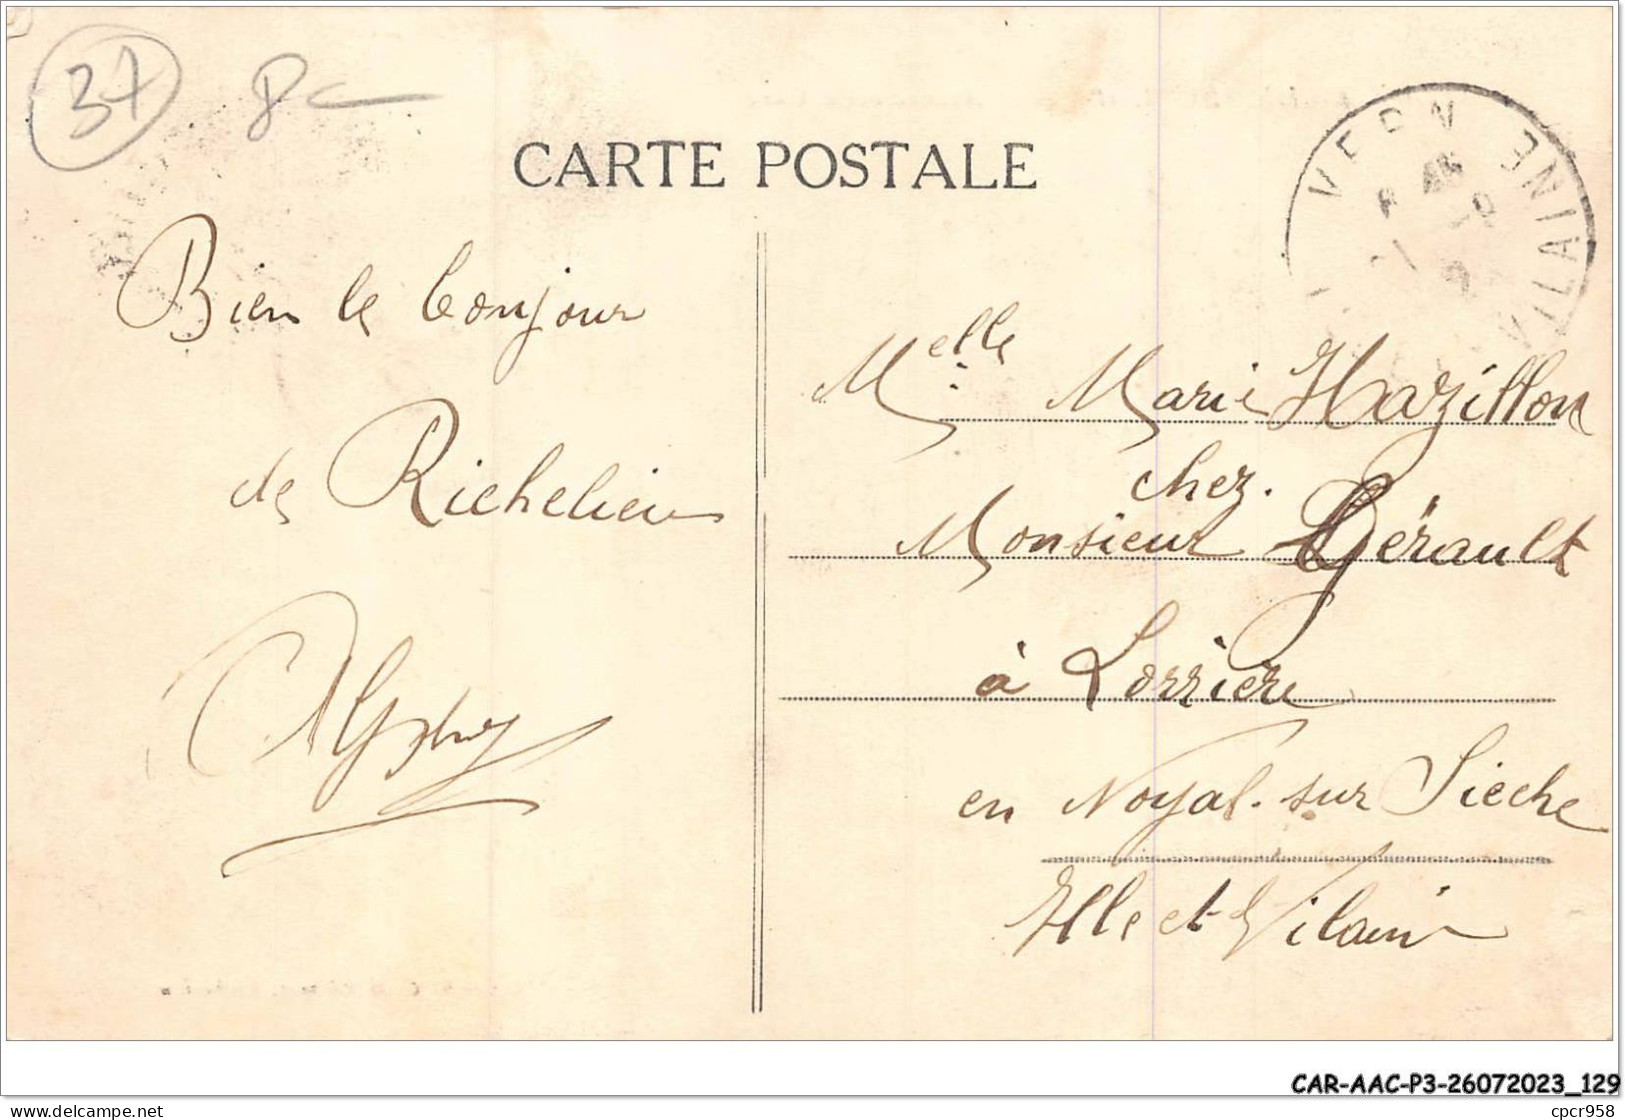 37 8
CARTE POSTALE
VERN VILAINE
Bien le bonjour
de Richelieu
Melle Marie Hazillon
chez.
Monsieur Gérault
à Lorriere
en Noyal-sur Sieche
Ille et Vilaine
CAR-AAC-P3-26072023_129
delcampe.net
cpcr958